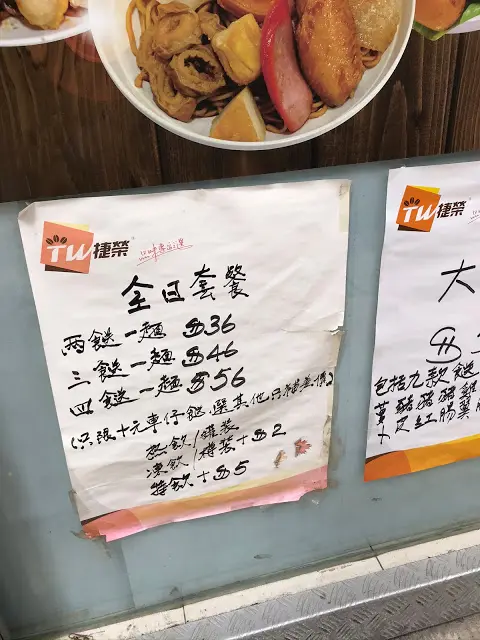 TW捷榮
全日套餐
兩餸一麵 $36
三餸一麵 $46
四餸一麵 $56
(只限十元車仔餸,選其他只補差價)
熱飲/罐裝
凍飲/樽裝+$2
特飲+$5
TW捷榮
大
$
包括九款餸
蘿豬豬豬雞
卜皮紅腸翼